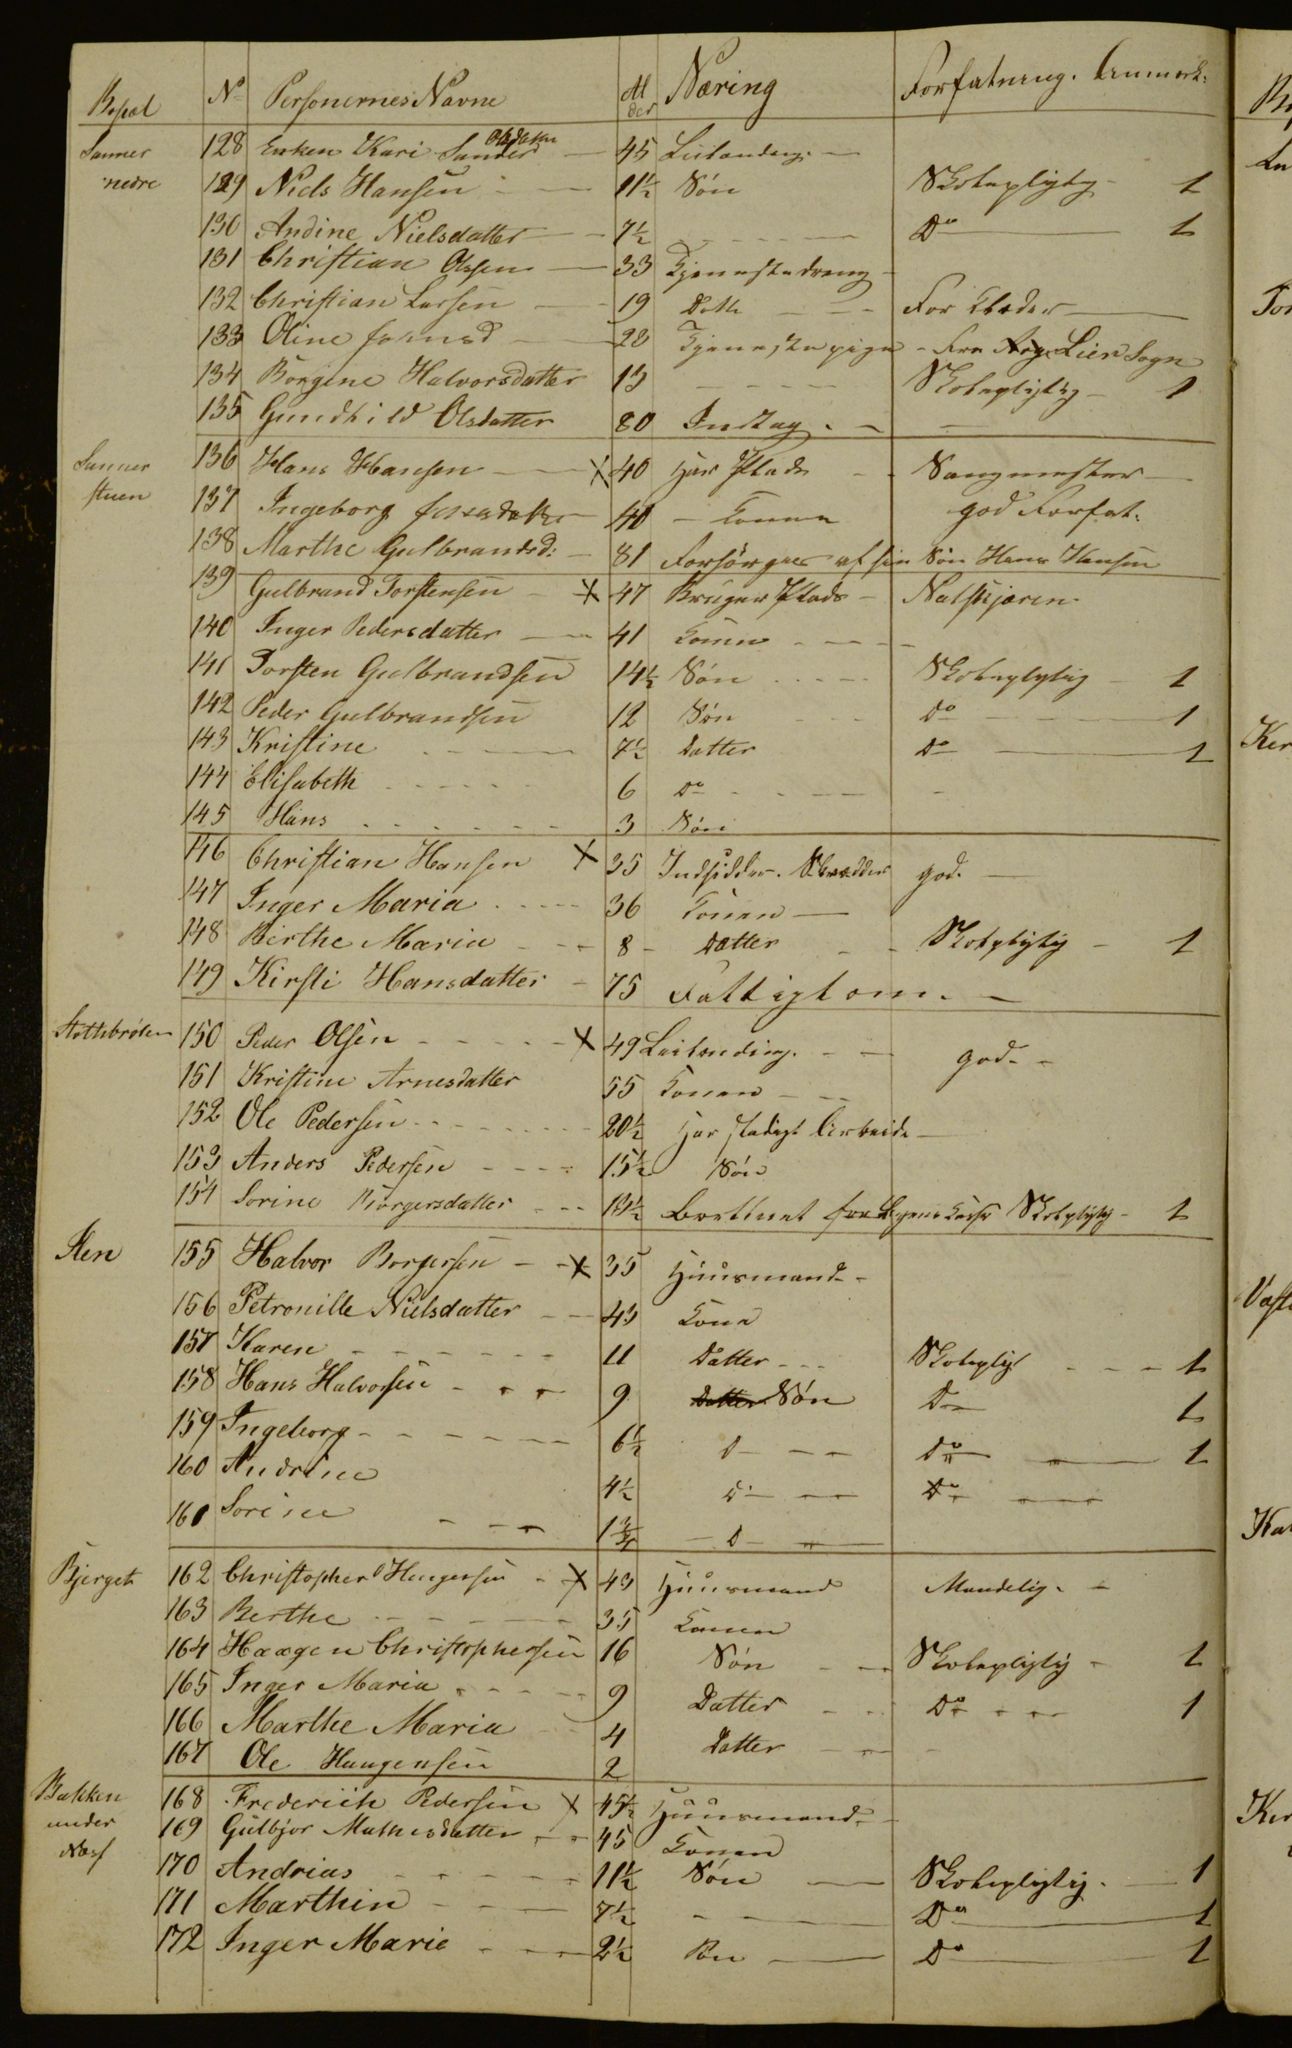 Bopæl No Personernes Navne Alder Næring Forfatning. Anmerk:
Sanner 128 Enken Kari Sander Olsdatter 45 Leilænding.
nedre 129 Niels Hansen 11½ Søn Skolepligtig 1
130 Andine Nielsdatter 7½ Do 1
131 Christian Olsen 33 Tjenestedreng
132 Christian Larsen 19 Dotto For Klæder
133 Oline 28 Tjenestepige - Fra Lier Sogn
134 Borgine Halvorsdatter 13 Skolepligtig 1
135 Gundhild Olsdatter 80 Indtag.
Sanner 136 Hans Hansen X 40 Har Plads Sangmester
stuen 137 Ingeborg 40 Konen god Forfat.
138 Marthe Gulbrandsd: 81 Forsørges af sin Søn Hans Hansen
139 Gulbrand Torstensen X 47 Bruger Plads
140 Inger Pedersdatter 41 Konen
141 Torsten Gulbrandsen 14½ Søn Skolepligtig 1
142 Peder Gulbrandsen 12 Søn Do 1
143 Kristine 7½ Datter Do 1
144 Elisabeth 6 Do
145 Hans 3 Søn
146 Christian Hansen X 35 Indsidder. Skrædder god.
147 Inger Maria 36 Konen
148 Birthe Maria 8 Datter Skolepligtig 1
149 Kirsti Hansdatter 75 Fattiglem.
150 Peder Olsen X 49 Leilænding. god.
151 Kristine Arnesdatter 55 Konen
152 Ole Pedersen 20½ Har stadigt Arbeide
153 Anders Pedersen 15½ Søn
154 Sorine Borgersdatter 13½ Skolepligtig 1
Sten 155 Halvor Borgersen X 35 Huusmand
156 Petronille Nielsdatter 43 Kone
157 Karen 11 Datter Skolepligt 1
158 Hans Halvorsen 9 Datter Søn Do 1
159 Ingeborg 6½ D Do 1
160 Andrine 4½ D Do
161 Sorine 1¾ D
Bjerget 162 Christopher Haugensen X 43 Huusmand Maadelig.
163 Berthe 35 Konen
164 Haagen Christophersen 16 Søn Skolepligtig 1
165 Inger Maria 9 Datter Do 1
166 Marthe Maria 4 Datter
167 Ole Haugensen 2
Bakken 168 Frederich Pedersen X 45½ Huusmand.
under 169 Gulbjør Mathisdatter 45 Konen
Næs 170 Andrias 11½ Søn Skolepligtig. 1
171 Marthin 7½ Do 1
172 Inger Marie 2½ Do 1